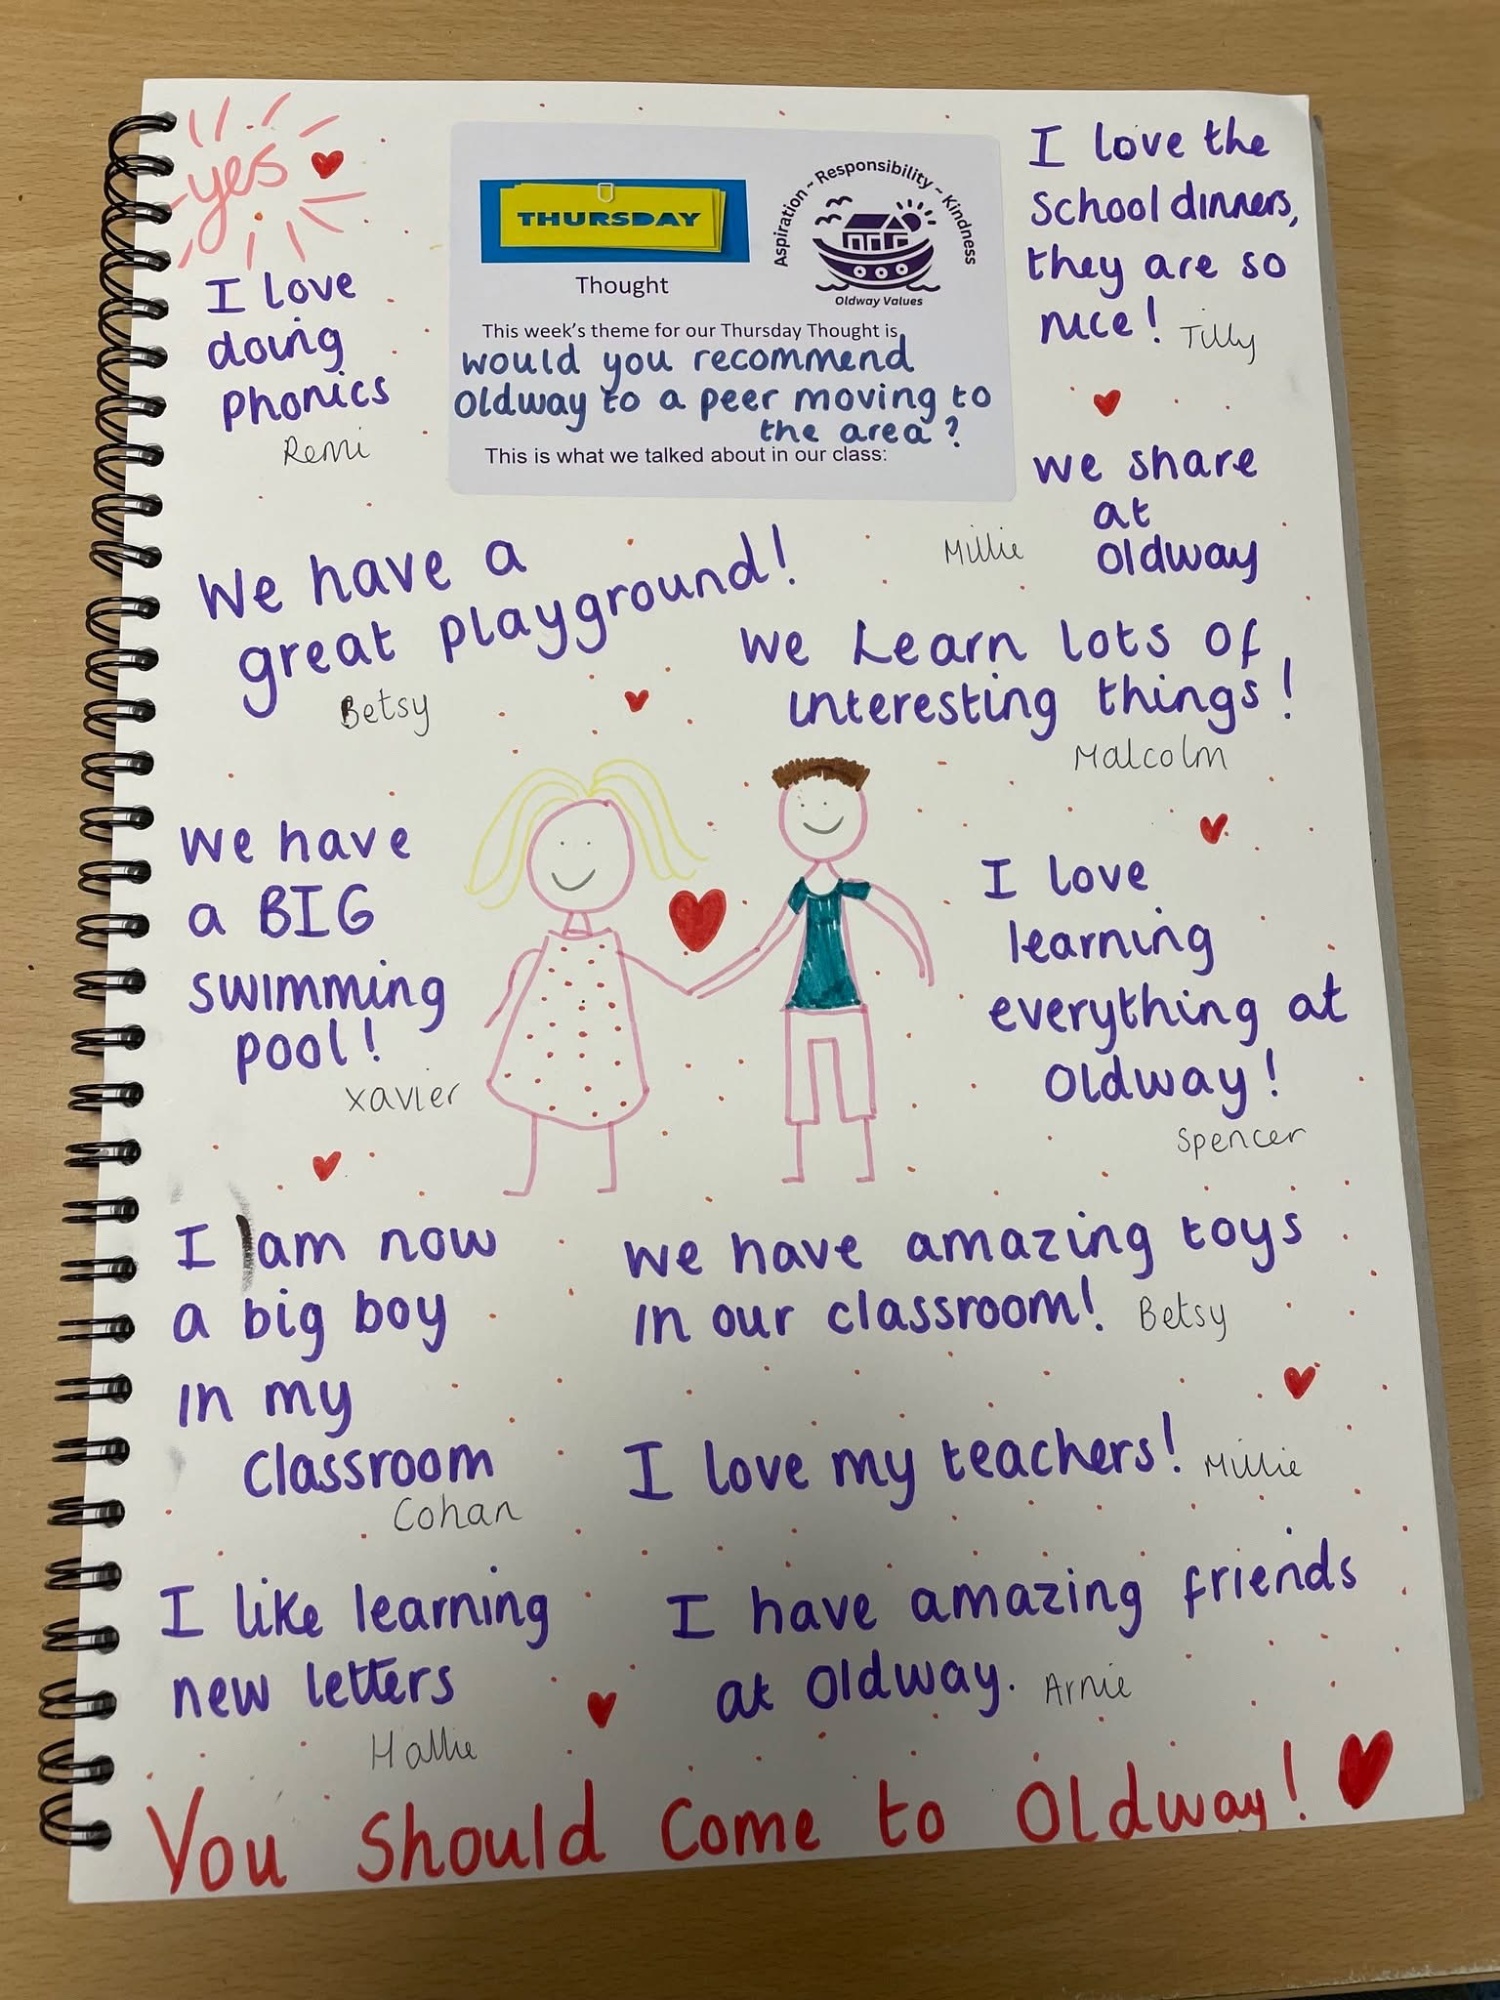 yes
I love
doing
phonics
Remi
THURSDAY
Thought
Aspiration ~ Responsibility ~ Kindness
Oldway Values
This week's theme for our Thursday Thought is
would you recommend
Oldway to a peer moving to
the area?
This is what we talked about in our class:
I love the
School dinners,
they are so
nice! Tilly
we share
at
Oldway
Millie
We have a
great playground!
Betsy
We Learn lots of
interesting things!
Malcolm
We have
a BIG
swimming
pool!
Xavier
I love
learning
everything at
Oldway!
Spencer
I am now
a big boy
in my
classroom
Cohan
We have amazing toys
in our classroom! Betsy
I love my teachers! Millie
I like learning
new letters
Hallie
I have amazing friends
at Oldway. Arnie
You Should Come to Oldway!